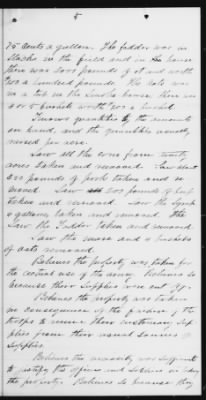 5
75 cents a gallon. The fodder was in
stacks in the field and in the house
there was 2000 pounds of it and worth
a hundred pounds. The oats was
in a tub in the smoke house, there was
4 or 5 bushels worth a bushel.
Knows quantities by the amounts
on hand, and the quantities usually
raised per acre.
Saw all the corn from
acres taken and removed. Saw about
pounds of pork taken and re
moved. Saw 200 pounds of beef
taken and removed. Saw the syrup
gallons, taken and removed. Also
Saw the Fodder taken and removed.
Saw the and bushels
of oats removed.
Believes the property was taken for
the actual use of the army. Believes so
because their supplies were cut off.
Believes the property was taken
in consequence of the failure of the
troops to receive their customary sup
plies from their usual sources of
supplies.
Believes the necessity was sufficient
to justify the officers and soldiers in taking
the property. Believes so because they